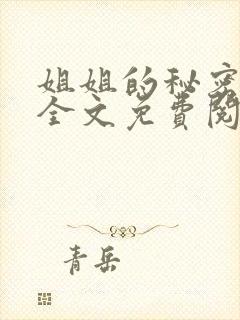 姐姐的秘密
全文免費閱
青岳